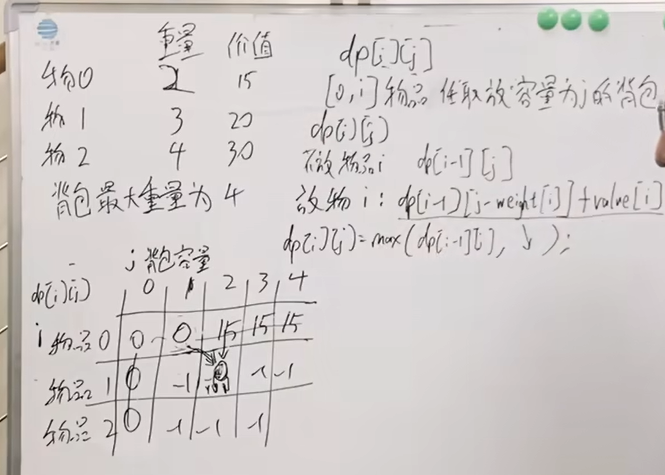 重量 价值
物品0 2 15
物1 3 20
物2 4 30
背包最大重量为4
dp[i][j]
[0,i]物品任取放容量为j的背包
dp[i][j]
不放物品i dp[i-1][j]
放物i: dp[i-1][j-weight[i]]+value[i]
dp[i][j]=max(dp[i-1][j], ↓ );
j背包容量
dp[i][j] 0 1 2 3 4
i 物品0 0 0 15 15 15
物品1 0 -1 -1 -1
物品2 0 -1 -1 -1